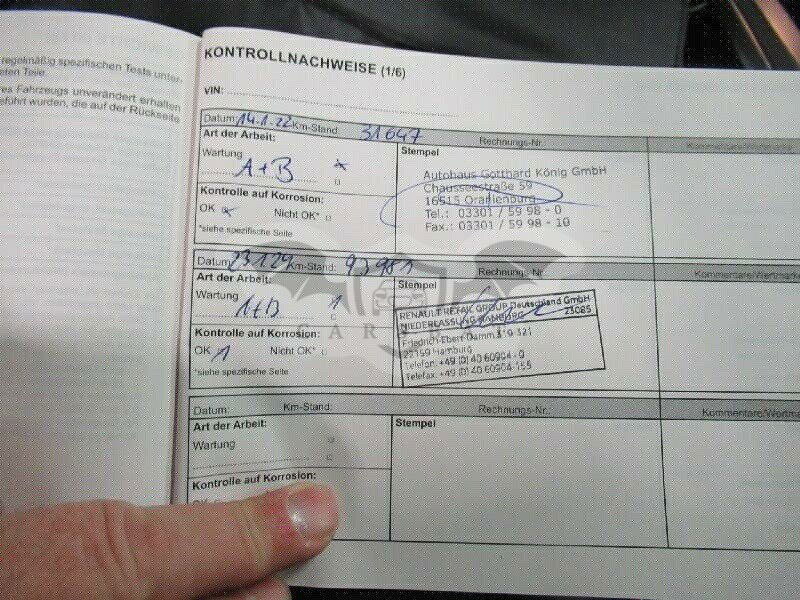 regelmäßig spezifischen Tests unter-
eten Teile.
es Fahrzeugs unverändert erhalten
eführt wurden, die auf der Rückseite
KONTROLLNACHWEISE (1/6)
VIN:
Datum: 14.1.22 Km-Stand: 31647 Rechnungs-Nr. Kommentare/Wertmarke
Art der Arbeit: Stempel
Wartung
A+B
Kontrolle auf Korrosion:
OK Nicht OK*
*siehe spezifische Seite
Autohaus Gotthard König GmbH
Chausseestraße 59
16515 Oranienburg
Tel.: 03301 / 59 98 - 0
Fax.: 03301 / 59 98 - 10
Datum: Km-Stand: Rechnungs-Nr. Kommentare/Wertmarke
Art der Arbeit: Stempel
Wartung
Kontrolle auf Korrosion:
OK Nicht OK*
*siehe spezifische Seite
RENAULT RETAIL GROUP Deutschland GmbH
NIEDERLASSUNG HAMBURG 23085
Friedrich-Ebert-Damm 319-321
22159 Hamburg
Telefon: +49 (0) 40 60904 - 0
Telefax: +49 (0) 40 60904-155
Datum: Km-Stand: Rechnungs-Nr.: Kommentare/Wertm
Art der Arbeit: Stempel
Wartung
Kontrolle auf Korrosion: